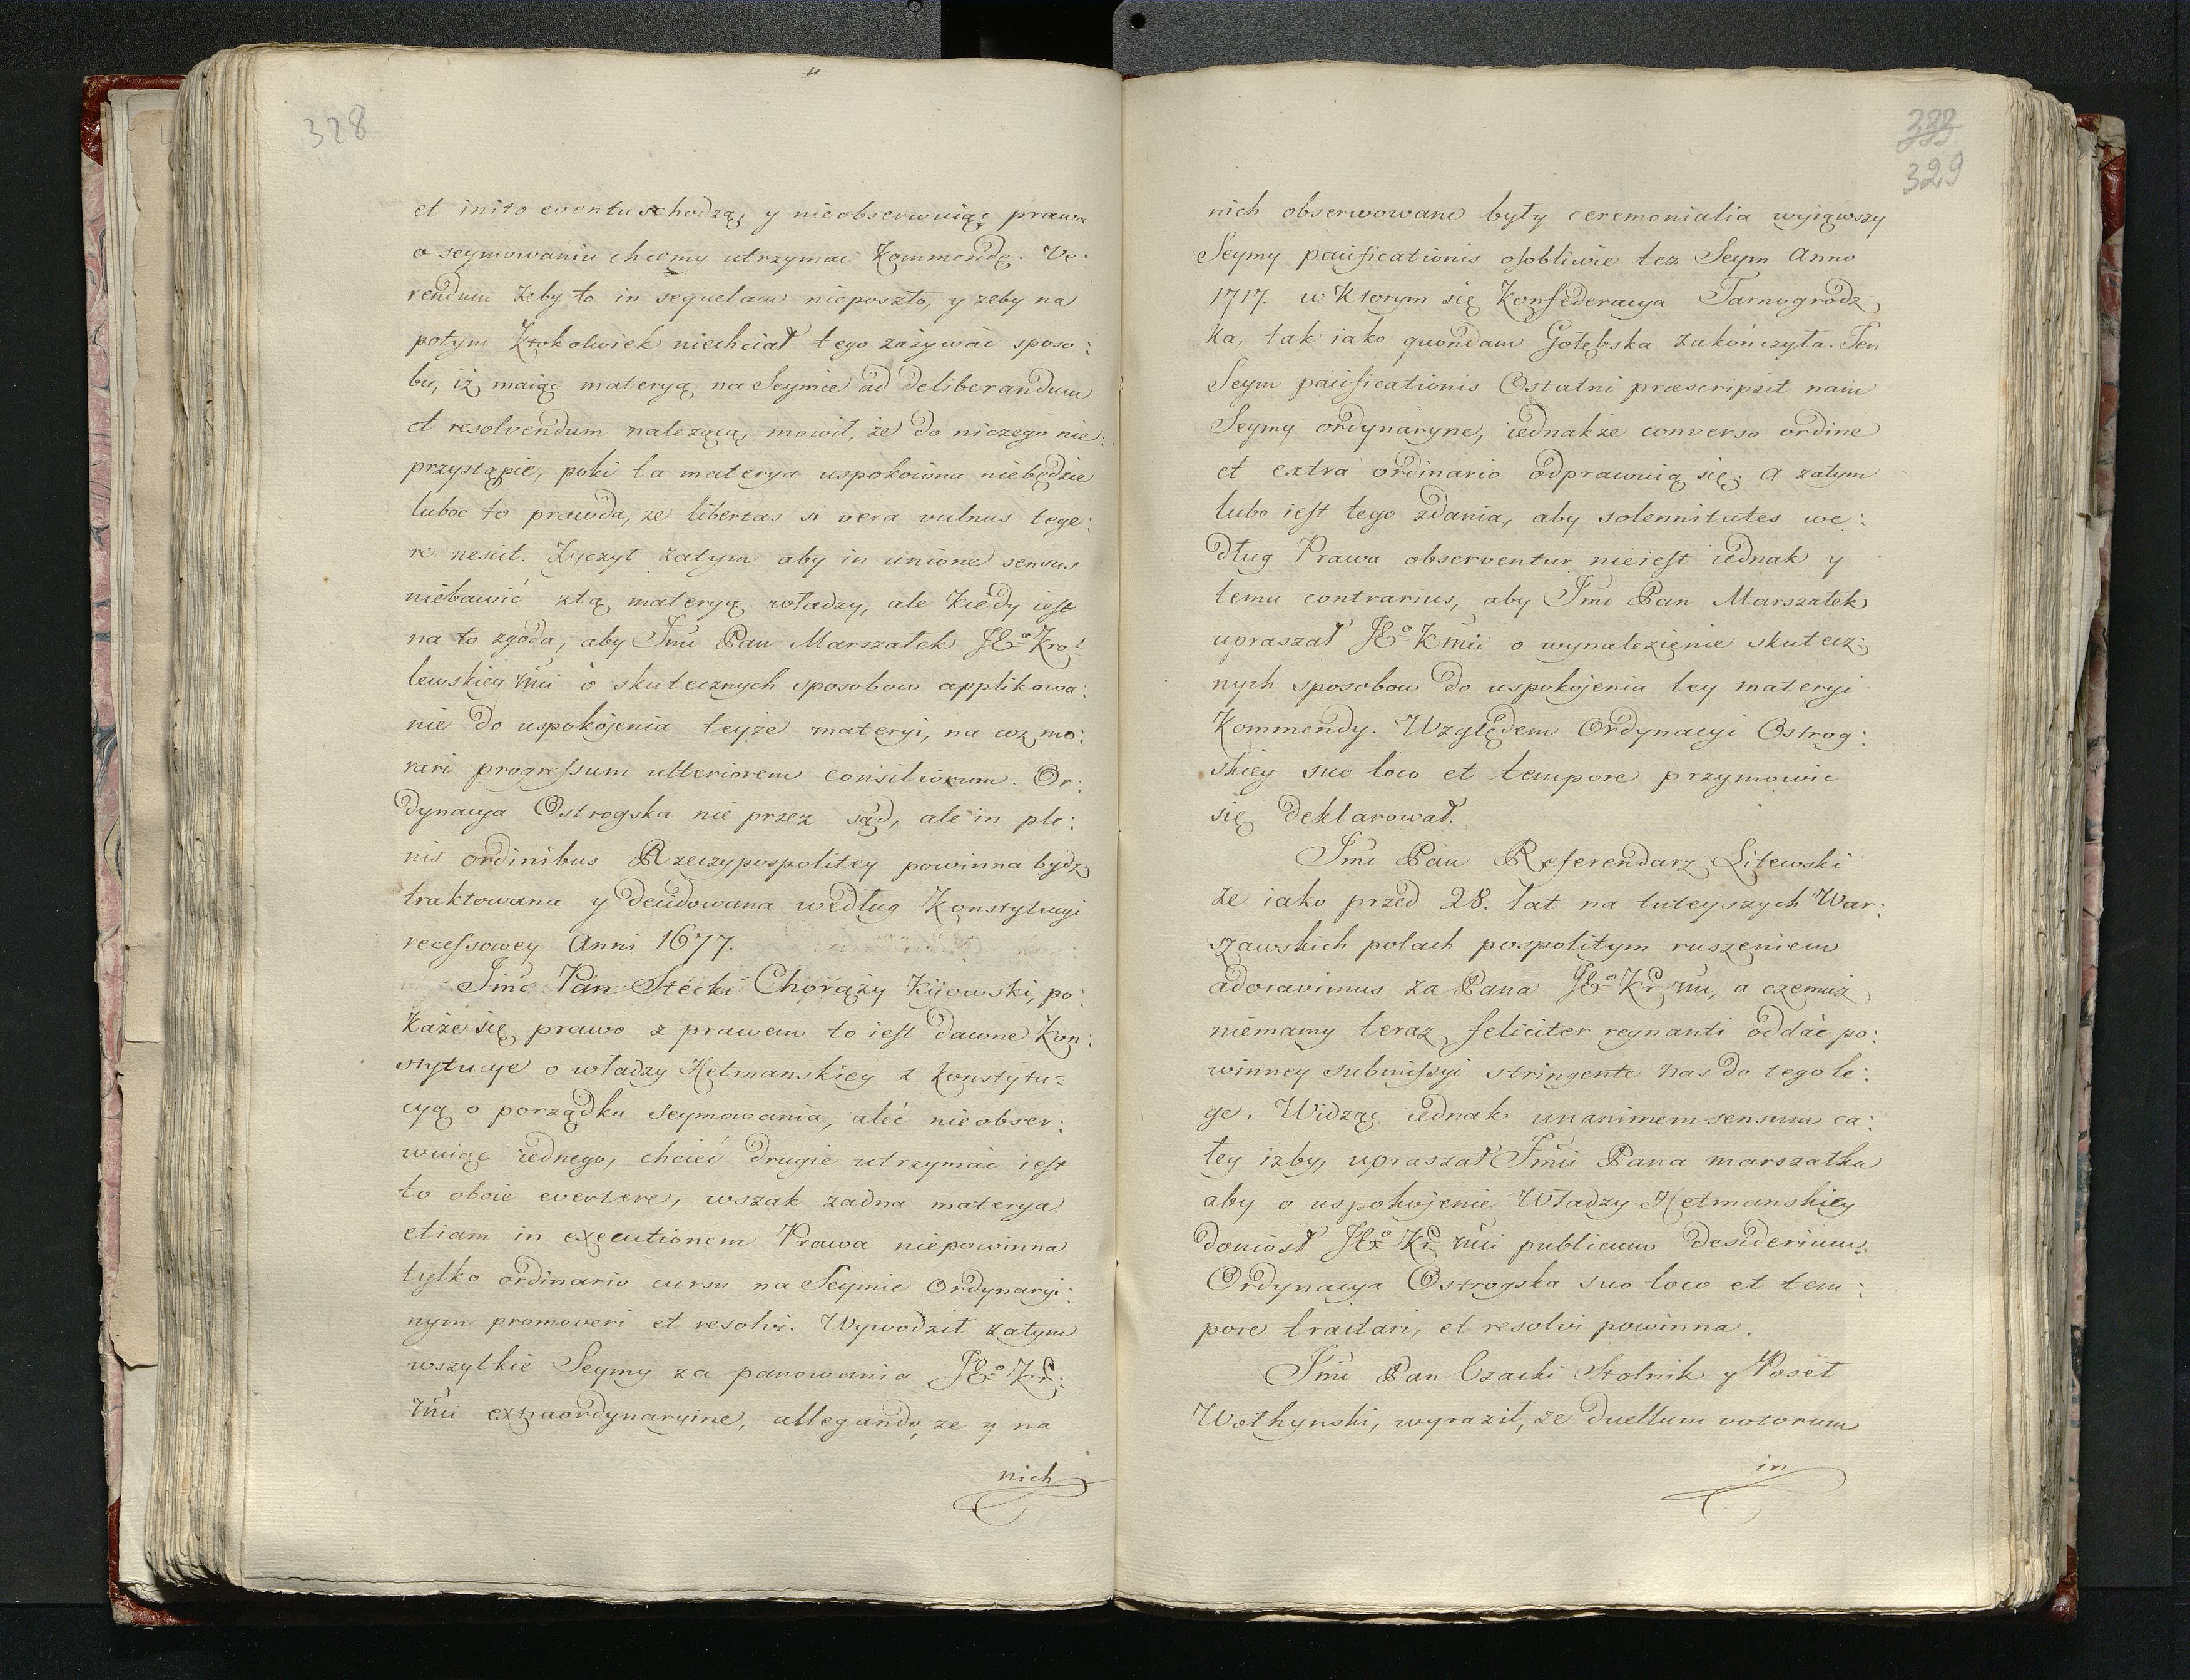 328
et inito eventu schodzą, y nieobserwuiąc prawa
o seymowaniu chcemy utrzymać Kommendę. Ve:
rendum żeby to in sequelam nieposzło, y zeby na
potym Ktokolwiek niechciał tego zażywać sposo:
bu, iż maiąc materyą na Seymie ad deliberandum
et resolvendum należącą, mowił, że do niczego nie:
przystąpię, poki ta materya uspokoiona niebędzie
luboc to prawda, ze libertas si vera vulnus tege:
re nescit. Zyczył zatym aby in unione sensus
niebawić ztą materyą władzy, ale kiedy iest
na to zgoda, aby Jmć Pan Marszałek JE⁰ Kro:
lewskiey Mći o skutecznych sposobow applikowa:
nie do uspokojenia teyże materyi, na coz mo:
rari progressum ulteriorem consiliorum. Or:
dynacya Ostrogska nie przez sąd, ale in ple:
nis ordinibus Rzeczypospolitey powinna bydz
traktowana y decidowana według Konstytucyi
recessowey Anni 1677.
Jmć Pan Stecki Chorąży Kijowski, po:
każe się prawo z prawem to iest dawne Kon:
stytucye o władzy Hetmanskiey z Konstytu=
cyą o porządku Seymowania, ależ nieobser:
wuiąc iednego, chcieć drugie utrzymać iest
to oboie evertere, wszak zadna materya
etiam in executionem Prawa niepowinna
tylko ordinario cursu na Seymie Ordynaryi:
nym promoveri et resolvi. Wywodził zatym
wszytkie Seymy za panowania JE⁰ Kr:
Mći extraordynaryine, allegando, ze y na
nich
333
329
nich obserwowane były ceremonialia wyiąwszy
Seymy pacificationis osobliwie tez Seym Anno
1717. w Ktorym się Konfederacya Tarnogrodz
ka, tak iako quondam Gołębska zakończyła. Ten
Seym pacificationis Ostatni præscripsit nam
Seymy ordynaryne, iednakże converso ordine
et extra ordinario odprawuią się; A zatym
lubo iest tego zdania, aby solennitates we:
dług Prawa observentur nieiest iednak y
temu contrarius, aby Jmć Pan Marszałek
upraszał JE⁰ K Mći o wynalezienie skutecz:
nych sposobow do uspokojenia tey materyi
Kommendy. Względem Ordynacyi Ostrog:
skiey suo loco et tempore przymowić
się deklarował.
Jmć Pan Referendarz Litewski
że iako przed 28. lat na tuteyszych War:
szawskich polach pospolitym ruszeniem
adoravimus za Pana JE⁰ Kr Mć, a czemuż
niemamy teraz feliciter regnanti oddać po:
winney submissyi stringente nas do tego le:
ge. Widząc iednak unanimem sensum ca:
łey izby, upraszał Jmći Pana marszałka
aby o uspokojenie Władzy Hetmanskiey
doniosł JE⁰ Kr Mći publicum desiderium.
Ordynacya Ostrogska suo loco et tem:
pore tractari, et resolvi powinna.
Jmć Pan Czacki Stolnik y Poseł
Wołhynski, wyraził, ze duellum votorum
in